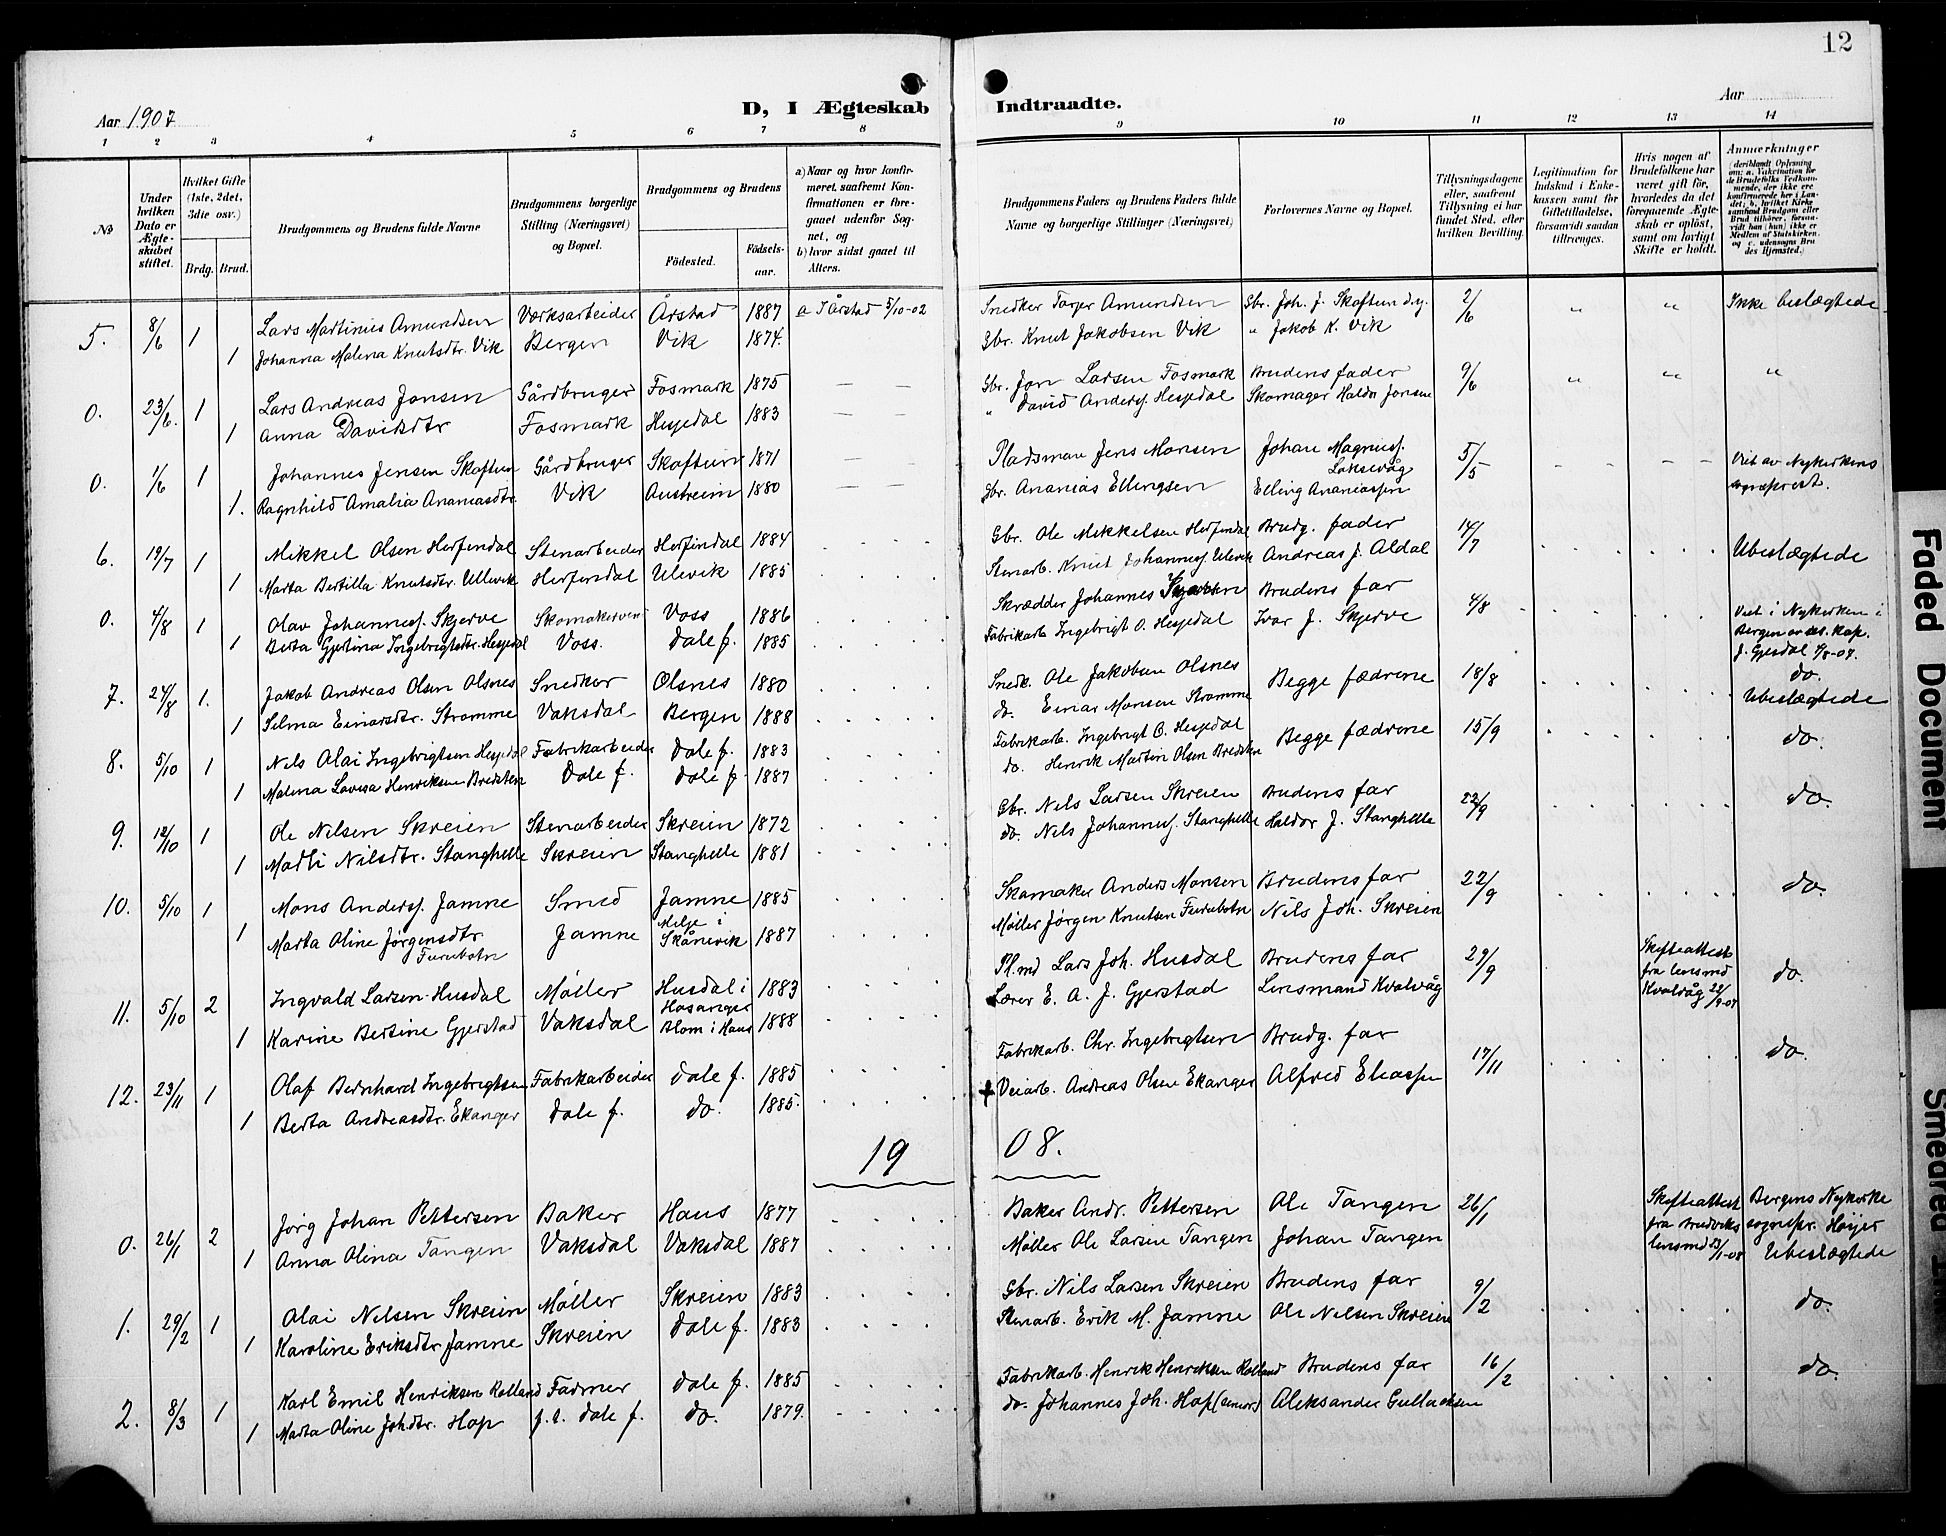 12
Aar 1907
D, I Ægteskab Indtraadte.
Aar
1 2 3 4 5 6 7 8 9 10 11 12 13 14
No
Under hvilken Dato er Ægteskabet stiftet.
Hvilket Gifte (1ste, 2det, 3die osv.)
Brdg. Brud.
Brudgommens og Brudens fulde Navne
Brudgommens borgerlige Stilling (Næringsvei) og Bopæl.
Brudgommens og Brudens
Födested. Födselsaar.
a) Naar og hvor konfirmeret, saafremt Konfirmationen er foregaaet udenfor Sognet, og
b) hvor sidst gaaet til Alters.
Brudgommens Faders og Brudens Faders fulde Navne og borgerlige Stillinger (Næringsvei)
Forlovernes Navne og Bopæl.
Tillysningsdagene eller, saafremt Tillysning ei har fundet Sted, efter hvilken Bevilling.
Legitimation for Indskud i Enkekassen samt for Giftetilladelse, forsaavidt saadan tiltrænges.
Hvis nogen af Brudefolkene har været gift før, hvorledes da det foregaaende Ægteskab er opløst, samt om lovligt Skifte er holdt.
Anmærkninger
(deriblandt Oplysning om: a. Vakcination for de Brudefolks Vedkommende, der ikke ere konfirmerede her i Landet; b. hvilket Kirkesamfund Brudgom eller Brud tilhører, forsaavidt han (hun) ikke er Medlem af Statskirken, og c. udensogns Brudes Hjemsted.)
5. 8/6 1 Lars Martinius Amundsen Værksarbeider Årstad 1887 a I Årstad 5/10-02 Snedker Torger Amundsen Gbr. Joh. J. Skaftun d.y. 2/6 " " Ikke beslægtede
1 Johanna Malena Knutsdtr. Vik Bergen Vik 1874. Gbr. Knut Jakobsen Vik " Jakob K. Vik
0. 23/6. 1 Lars Andreas Jonsen Gårdbruger Fosmark 1875 — — Gbr. Jon Larsen Fosmark Brudens fader 9/6 " " "
1 Anna Davidsdtr Fosmark Hesjedal 1883 — — " David Anders. Hesjedal Skomager Haldor Jonsen
0. 1/6 1 Johannes Jensen Skaftun Gårdbruger Skaftun 1871 — Pladsman Jens Monsen Johan Magnus. Laksevåg 5/5 - - — — Viet av Nykirkens sogneprest.
1. Ragnhild Amalia Ananiasdtr. Vik Austreim 1880 — — Gbr. Ananias Ellingsen Elling Ananiassen
6. 19/7 1 Mikkel Olsen Herfindal Stenarbeider Herfindal 1884 Gbr. Ole Mikkelsen Herfindal Brudg. fader 14/7 Ubeslægtede
1 Marta Bertilla Knutsdtr. Ullevik Herfindal Ulevik 1885 Stenarb. Knut Johanness. Ulevik Andreas J. Aldal
0. 4/8 1 Olav Johanness. Skjerve Skomakersven Voss 1886 Skrædder Johannes Brudens far 4/8 Viet i Nykirken i Bergen av res. kap. J. Gjesdal 4/8-07.
1 Berta Gjertina Ingebrigtsdtr. Hesjedal Voss. Dale f. 1885 Fabrikarb. Ingebrigt O. Hesjedal Ivar J. Skjerve do.
7. 24/8 1. Jakob Andreas Olsen Olsnes Snedker Olsnes 1880 Snedk. Ole Jakobsen Olsnes Begge fædrene 18/8 Ubeslægtede
1 Selma Einarsdtr. Stromme Vaksdal Bergen 1888 do. Einar Monsen Stromme
8. 5/10 1 Nils Olai Ingebrigtsen Hesjedal Fabrikarbeider Dale f. 1883 Fabrikarb. Ingebrigt O. Hesjedal Begge fædrene 15/9 do.
1 Malena Lovisa Henriksen Bredsten Dale f. Dale f. 1887 do. Henrik Martin Olsen Bredsten
9. 12/10 1 Ole Nilsen Skreien Stenarbeider Skreien 1872 Gbr. Nils Larsen Skreien Brudens far 22/9 do.
1 Madli Nilsdtr. Stanghelle Skreien Stanghelle 1881 do. Nils Johanness. Stanghelle Haldor J. Stanghelle
10. 5/10 1 Mons Anders. Jamne Smed Jamne 1885 Skomaker Anders Monsen Brudens far 22/9 do.
1 Marta Oline Jørgensdtr. Furubotn Jamne i Skånevik 1887 Møller Jørgen Knutsen Furubotn Nils Joh. Skreien
11. 5/10 2 Ingvald Larsen Husdal Møller Husdal i Hosanger 1883 Pl.md Lars Joh. Husdal Brudens far 29/9 Skifteattest fra lensmd Kvalvåg 22/9-07 do.
1 Karine Bertine Gjerstad Vaksdal Blom i Haus 1888 Lærer E. A. J. Gjerstad Lensmand Kvalvåg
12. 23/11 1 Olaf Bernhard Ingebrigtsen Fabrikarbeider Dale f. 1885 Fabrikarb. Chr. Ingebrigtsen Brudg. far 17/11 do.
1 Berta Andreasdtr. Ekanger Dale f. do. 1885. + Veiarb. Andreas Olsen Ekanger Alfred Eliassen
1908.
0. 26/1 2 Jørg Johan Pettersen Baker Haus 1877 Baker Andr. Pettersen Ole Tangen 26/1 Skifteattest fra Bruviks lensmd 23/1-08 Bergens Nykirke sognepr. Høyer Ubeslægtede
1 Anna Olina Tangen Vaksdal Vaksdal 1887 Møller Ole Larsen Tangen Johan Tangen
1. 29/2 1 Olai Nilsen Skreien Møller Skreien 1883 Gbr. Nils Larsen Skreien Brudens far 9/2 do.
1 Karoline Eriksdtr Jamne Skreien Dale f. 1883 Stenarb. Erik M. Jamne Ole Nilsen Skreien
2. 8/3 1 Karl Emil Henriksen Rolland Farmer Dale f. 1885 Fabrikarb. Henrik Henriksen Rolland Brudens far 16/2 do.
1 Marta Oline Joh.dtr. Hop f. t. Dale f. do. 1879. do. Johannes Joh. Hop (senior) Aleksander Gullachsen
Faded Document
Smeared